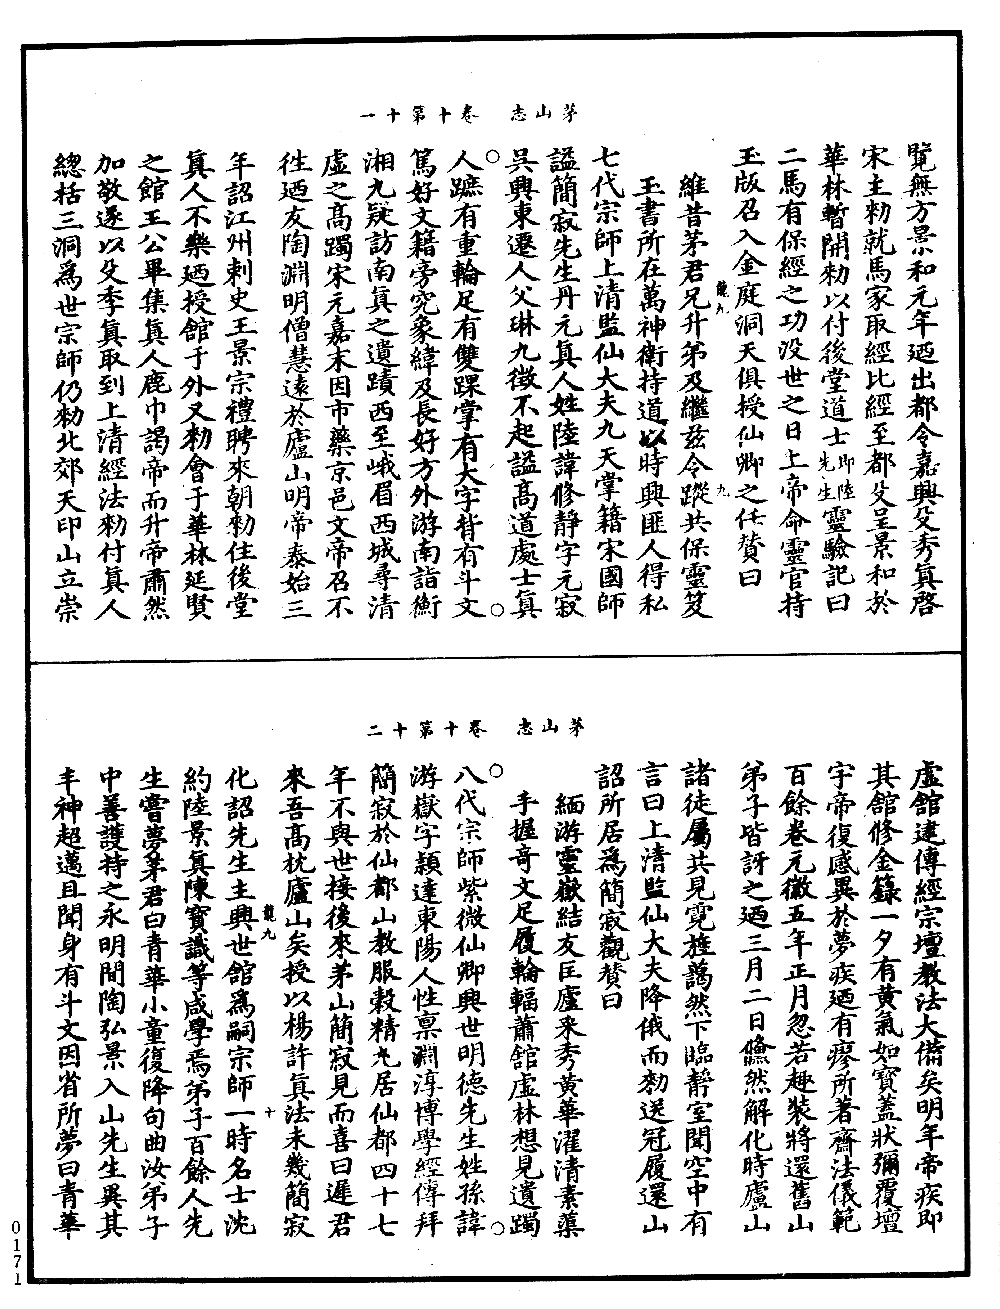 茅山志　卷十第十一
覽無方景和元年廼出都令嘉興殳季真啓
宋主勑就馬家取經比經至都殳呈景和於
華林暫開勑以付後堂道士即陸先生靈驗記曰
二馬有保經之功没世之日上帝命靈官持
玉版召入金庭洞天俱授仙卿之任贊曰
維昔茅君兄升弟及繼兹令蹤共保靈笈
玉書所在萬神衛持道以時興匪人得私
七代宗師上清監仙大夫九天掌籍宋國師
謚簡寂先生丹元真人姓陸諱修靜字元寂
吳興東遷人父琳九徵不起謚高道處士真
人蹠有重輪足有雙踝掌有大字背有斗文
篤好文籍旁究象緯及長好方外游南詣衡
湘九疑訪南真之遺蹟西至峨眉西城尋清
虛之高躅宋元嘉末因市藥京邑文帝召不
往廼友陶淵明僧慧遠於廬山明帝泰始三
年詔江州刺史王景宗禮聘來朝勑住後堂
真人不樂廼授館于外又勑會于華林延賢
之館王公畢集真人鹿巾謁帝而升帝肅然
加敬遂以殳季真取到上清經法勑付真人
總括三洞為世宗師仍勑北郊天印山立崇
龍九
九
茅山志　卷十第十二
虛館建傳經宗壇教法大備矣明年帝疾即
其館修金籙一夕有黃氣如寶蓋狀彌覆壇
宇帝復感異於夢疾廼有瘳所著齋法儀範
百餘卷元徽五年正月忽若趣裝將還舊山
弟子皆訝之廼三月二日儵然解化時廬山
諸徒屬共見霓旌藹然下臨靜室聞空中有
言曰上清監仙大夫降俄而勑送冠履還山
詔所居為簡寂觀贊曰
緬游靈嶽結友匡廬采秀黃華濯清素蕖
手握奇文足履輪輻蕭館虛林想見遺躅
八代宗師紫微仙卿興世明德先生姓孫諱
游嶽字穎達東陽人性稟淵淳博學經傳拜
簡寂於仙都山教服穀精丸居仙都四十七
年不與世接後來茅山簡寂見而喜曰遲君
來吾高枕廬山矣授以楊許真法未幾簡寂
化詔先生主興世館為嗣宗師一時名士沈
約陸景真陳寶識等咸學焉弟子百餘人先
生嘗夢茅君曰青華小童復降句曲汝弟子
中善護持之永明間陶弘景入山先生異其
丰神超邁且聞身有斗文因省所夢曰青華
龍九
十
0171